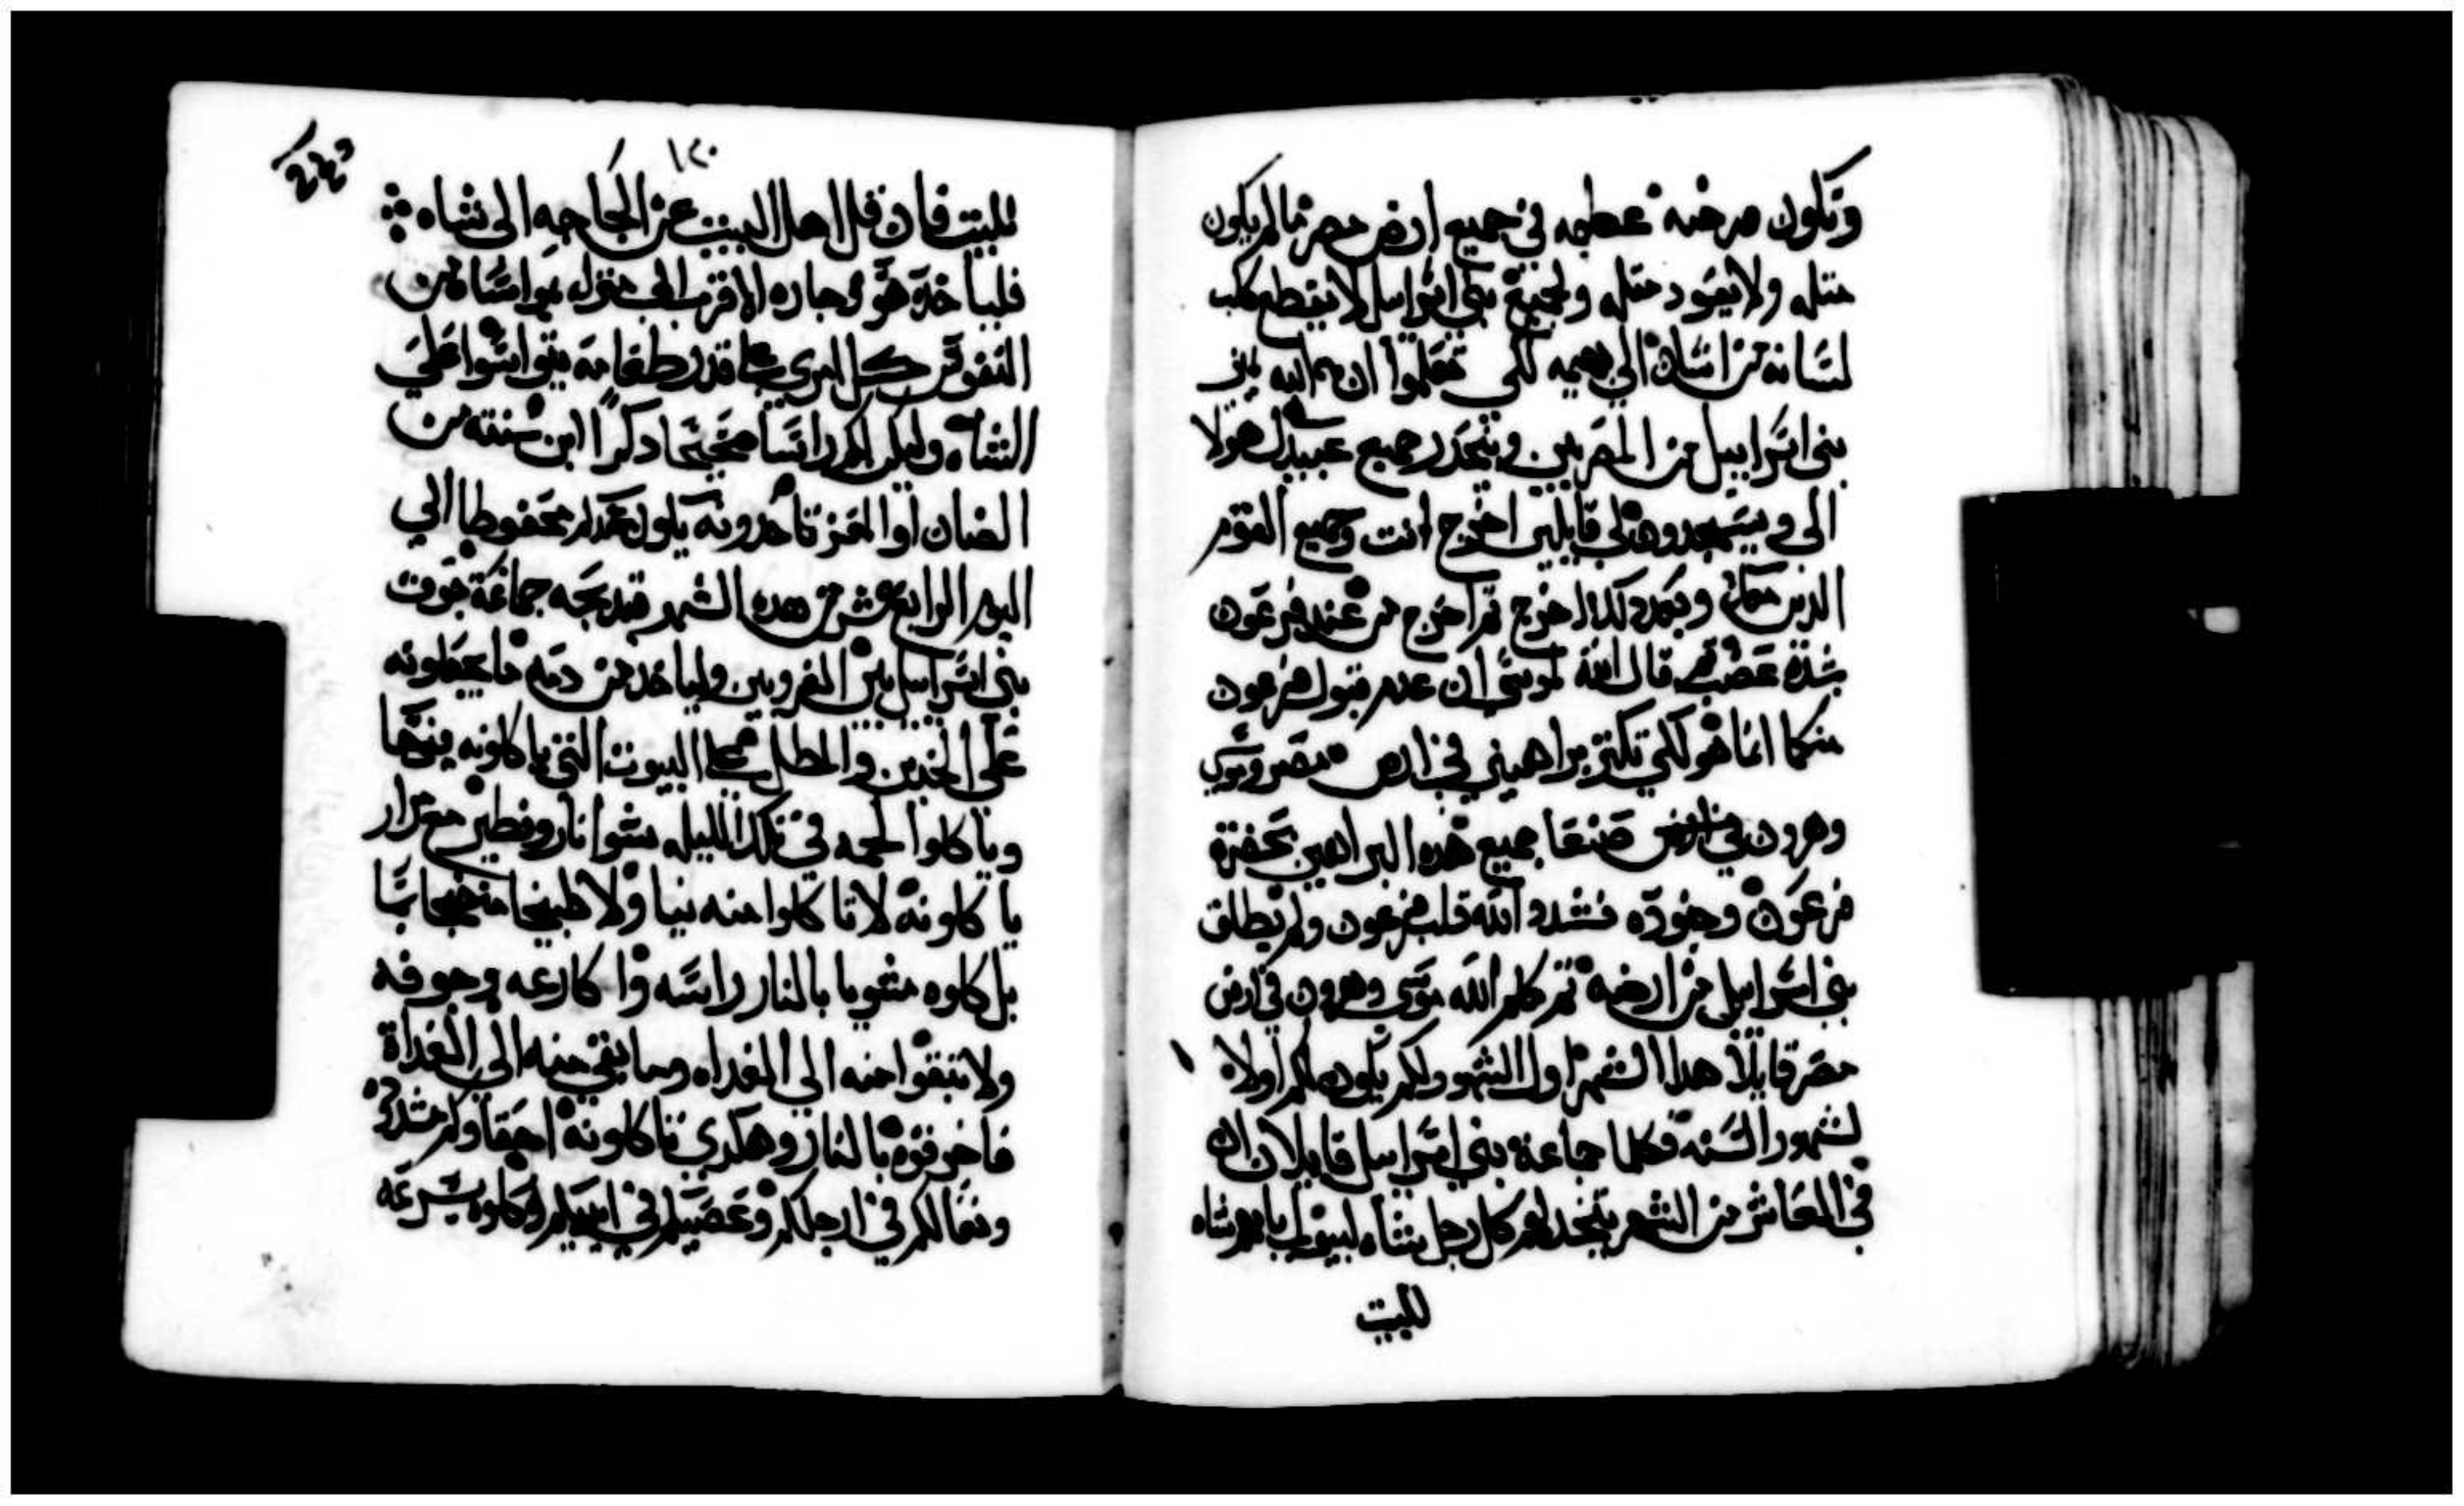 وتكون صرخه عظيمه في جميع ارض مصر ما لم يكون
مثله ولا يعود مثله ولجميع بني اسراييل لا يقطع كلب
لسانه من انسان الي بهيمه لكي تعلموا ان الله بين
بني اسراييل من المصريين وينحدر جميع عبيدك هولا
الي ويسجدوا لي قايلين اخرج انت وجميع القوم
الذين معك وبعد كدلك اخرج ثم اخرج من عند فرعون
بشدة غضب قال الله لموسي ان عدم قبول فرعون
منكما انما هو لكي تكتر براهيني في ارض مصر وموسي
وهرون صنعا جميع هذه البراهين بحضرة
فرعون وجنوده فشدد الله قلب فرعون ولم يطلق
بني اسراييل من ارضه ثم كلم الله موسي وهرون في ارض
مصر قايلا هدا الشهر اول الشهور لكم يكون لكم اولا
لشهور السنه فكلما جماعة بني اسراييل قايلا ان
في العاشر من الشهر يتخد لهم كل رجل شاه لبيوت ابايهم شاه
للبيت
١٢٠
للبيت فان قل اهل البيت عن الحاجه الي شاه
فلياخد هو وجاره الاقرب الي منزله بمواساه من
النفوس كل امري علي قدر طعامه يتواسوا علي
الشاه وليكن لكم راسا صحيحا دكرا ابن سنته من
الضان او المعز تاخدونه يكون عندكم محفوظا الي
اليوم الرابع عشر من هده الشهر فيدبحه جماعة جوق
بني اسراييل بين الغروبين ولياخد من دمه ما يجعلونه
علي الخدين والمطل علي البيوت التي ياكلونه فيها
وياكلوا لحمه في تلك الليله مشوا نار وفطير مع مرار
ياكلونه لا تاكلوا منه نيا ولا طبيخا منضجا بما
بل كلوه مشويا بالنار راسه واكارعه وجوفه
ولا تبقوا منه الي الغداه وما بقي منه الي الغداة
فاحرقوه بالنار وهكدي تاكلونه احقاوكم مشدوده
ونعالكم في ارجلكم وعصيكم في ايديكم وكلوه بسرعه